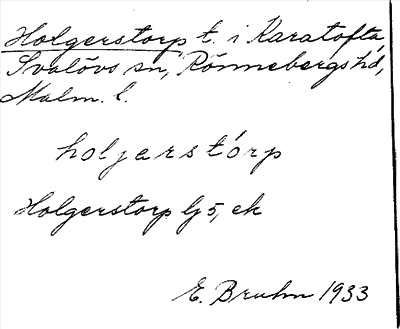 Holgerstorp t. i Karatofta,
Svalövs sn, Rönnebergs hd,
Malm. l.
holjarstórp
Holgerstorp lj 5, ek
E. Bruhn 1933